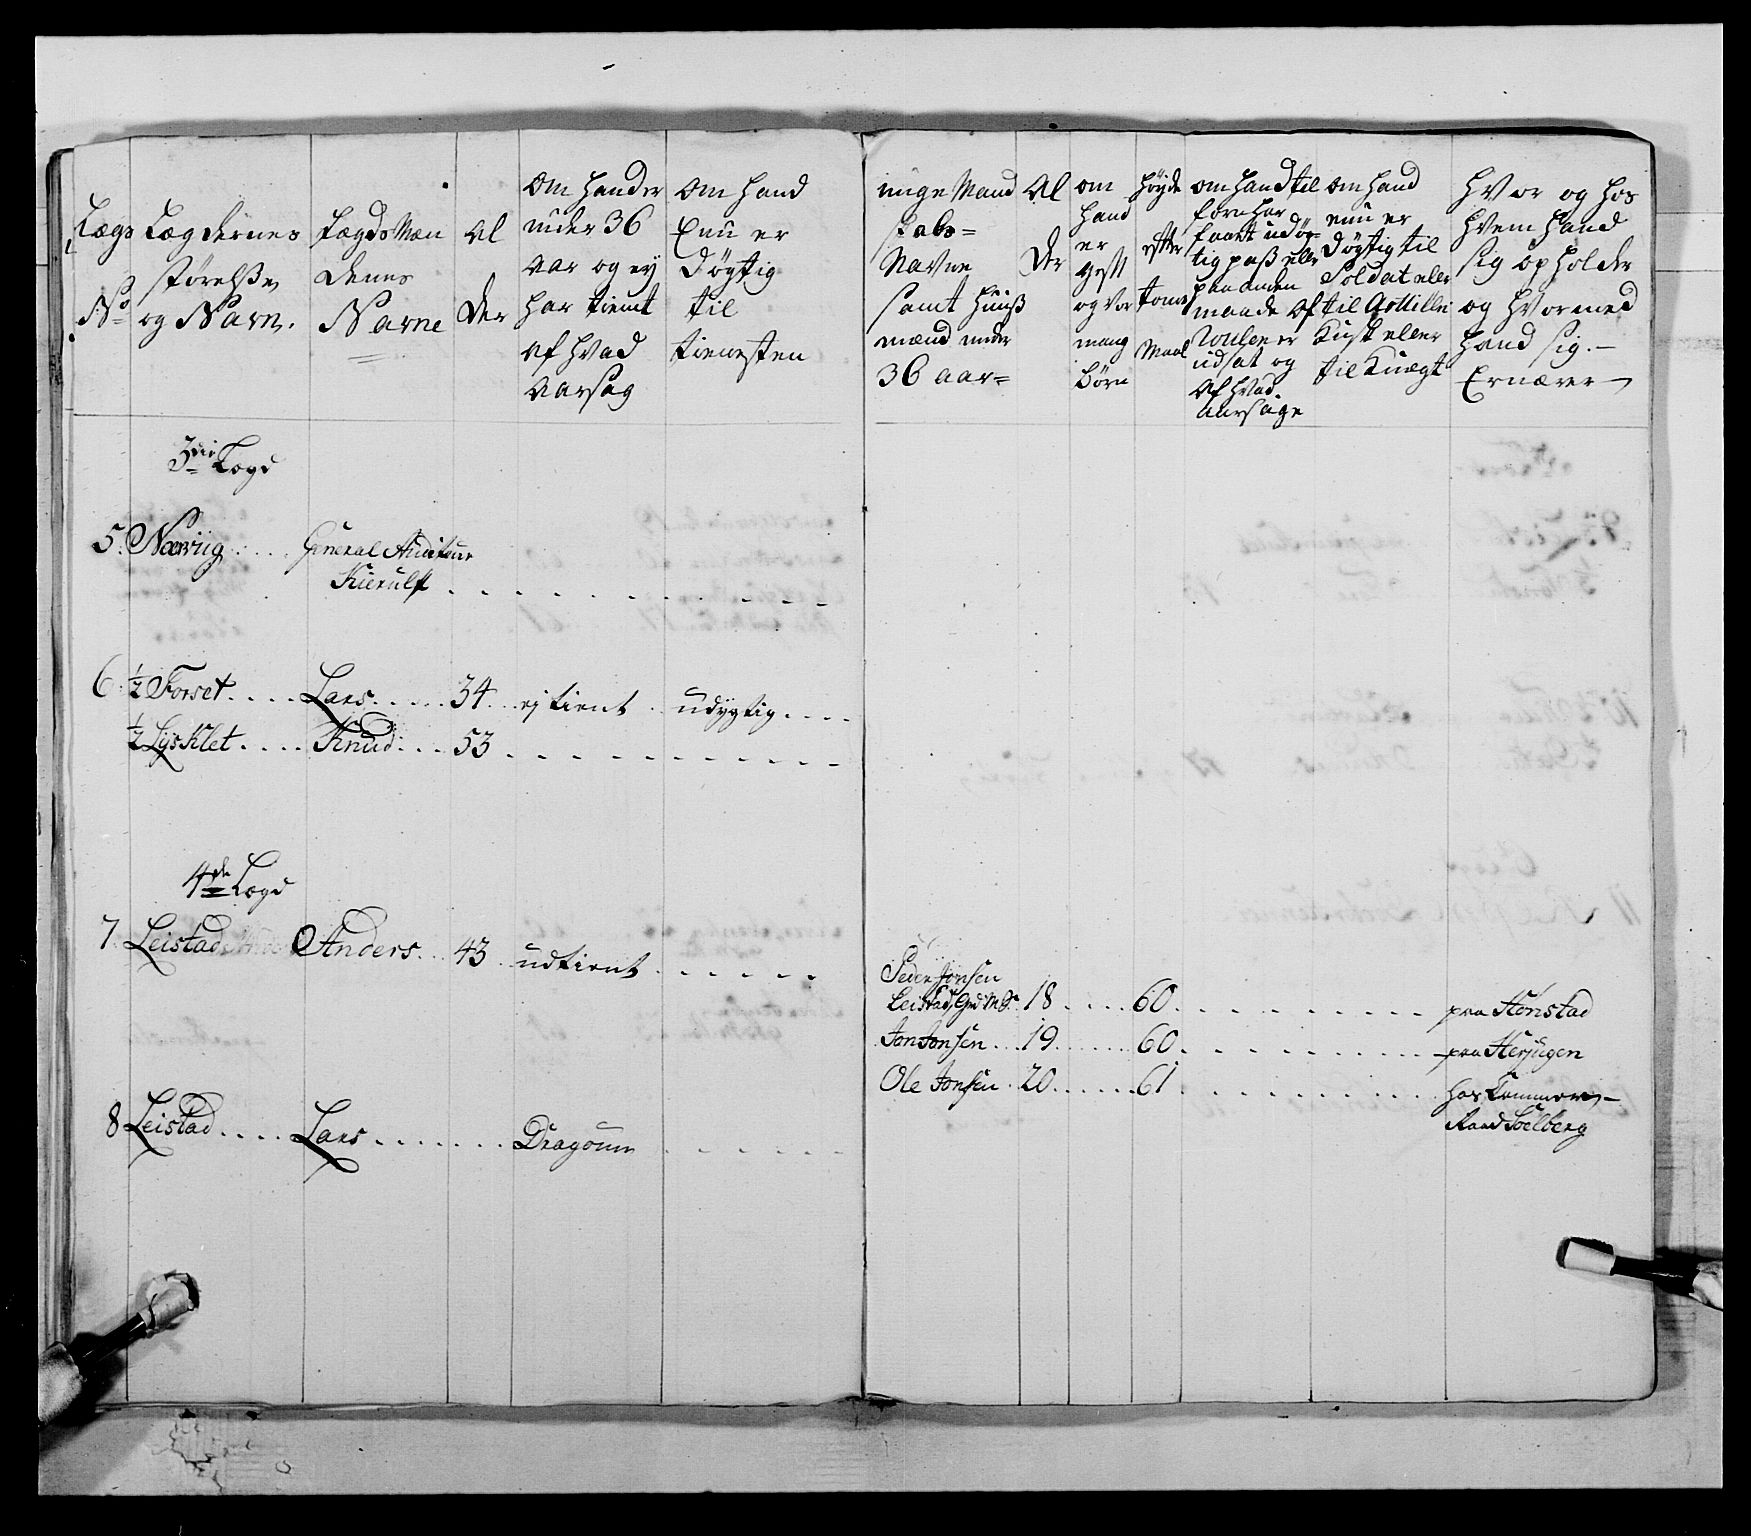 Lægs
No
Lægdernes
størelße,
og Navn.
Lægds Mæn
denes
Navne
Al
der
Om hand er
under 36
aar og ey
har tient
af hvad
aarsag
Om hand
Enu er
Dögtig
til
tienesten
unge Mand
skabs=
Navne
samt huuß
mænd under
36 aar=
Al
der
om
hand
er
gift
og hvor
mang
börn
höyde
efter
tomes
Maal
om hand til
forn har
faaet udög=
tig paß eller
paa anden
maade af
Roulen er
udsat og
af hvad
aarsage
om hand
enu er
Døgtig til
Soldat eller
til Artilleri
Kusk eller
til Knegt
hvor og hos
hvem hand
sig opholder
og hvormed
hand sig.
Ernærer
3die Lægd
5. Nærviig .... General Auditeur
Kierulff
6. 1/2 Forset .... Lars ..... 34 .. ej tient .. udygtig ....
1/2 Lysklet .... Knud .... 53
4de Lægd
7. Leistad Anders .. 43 . udtient
Peder Jonsen
Leistad, Grd M. S. 18 .... 60 .......... paa Hönstad
Jon Jonsen ... 19 ...... 60 .......... paa Herjugen
Ole Jonsen . 20 ...... 61 .......... hos Kammer-
Raad Soelberg
8 Leistad .... Lars ....... Dragoun